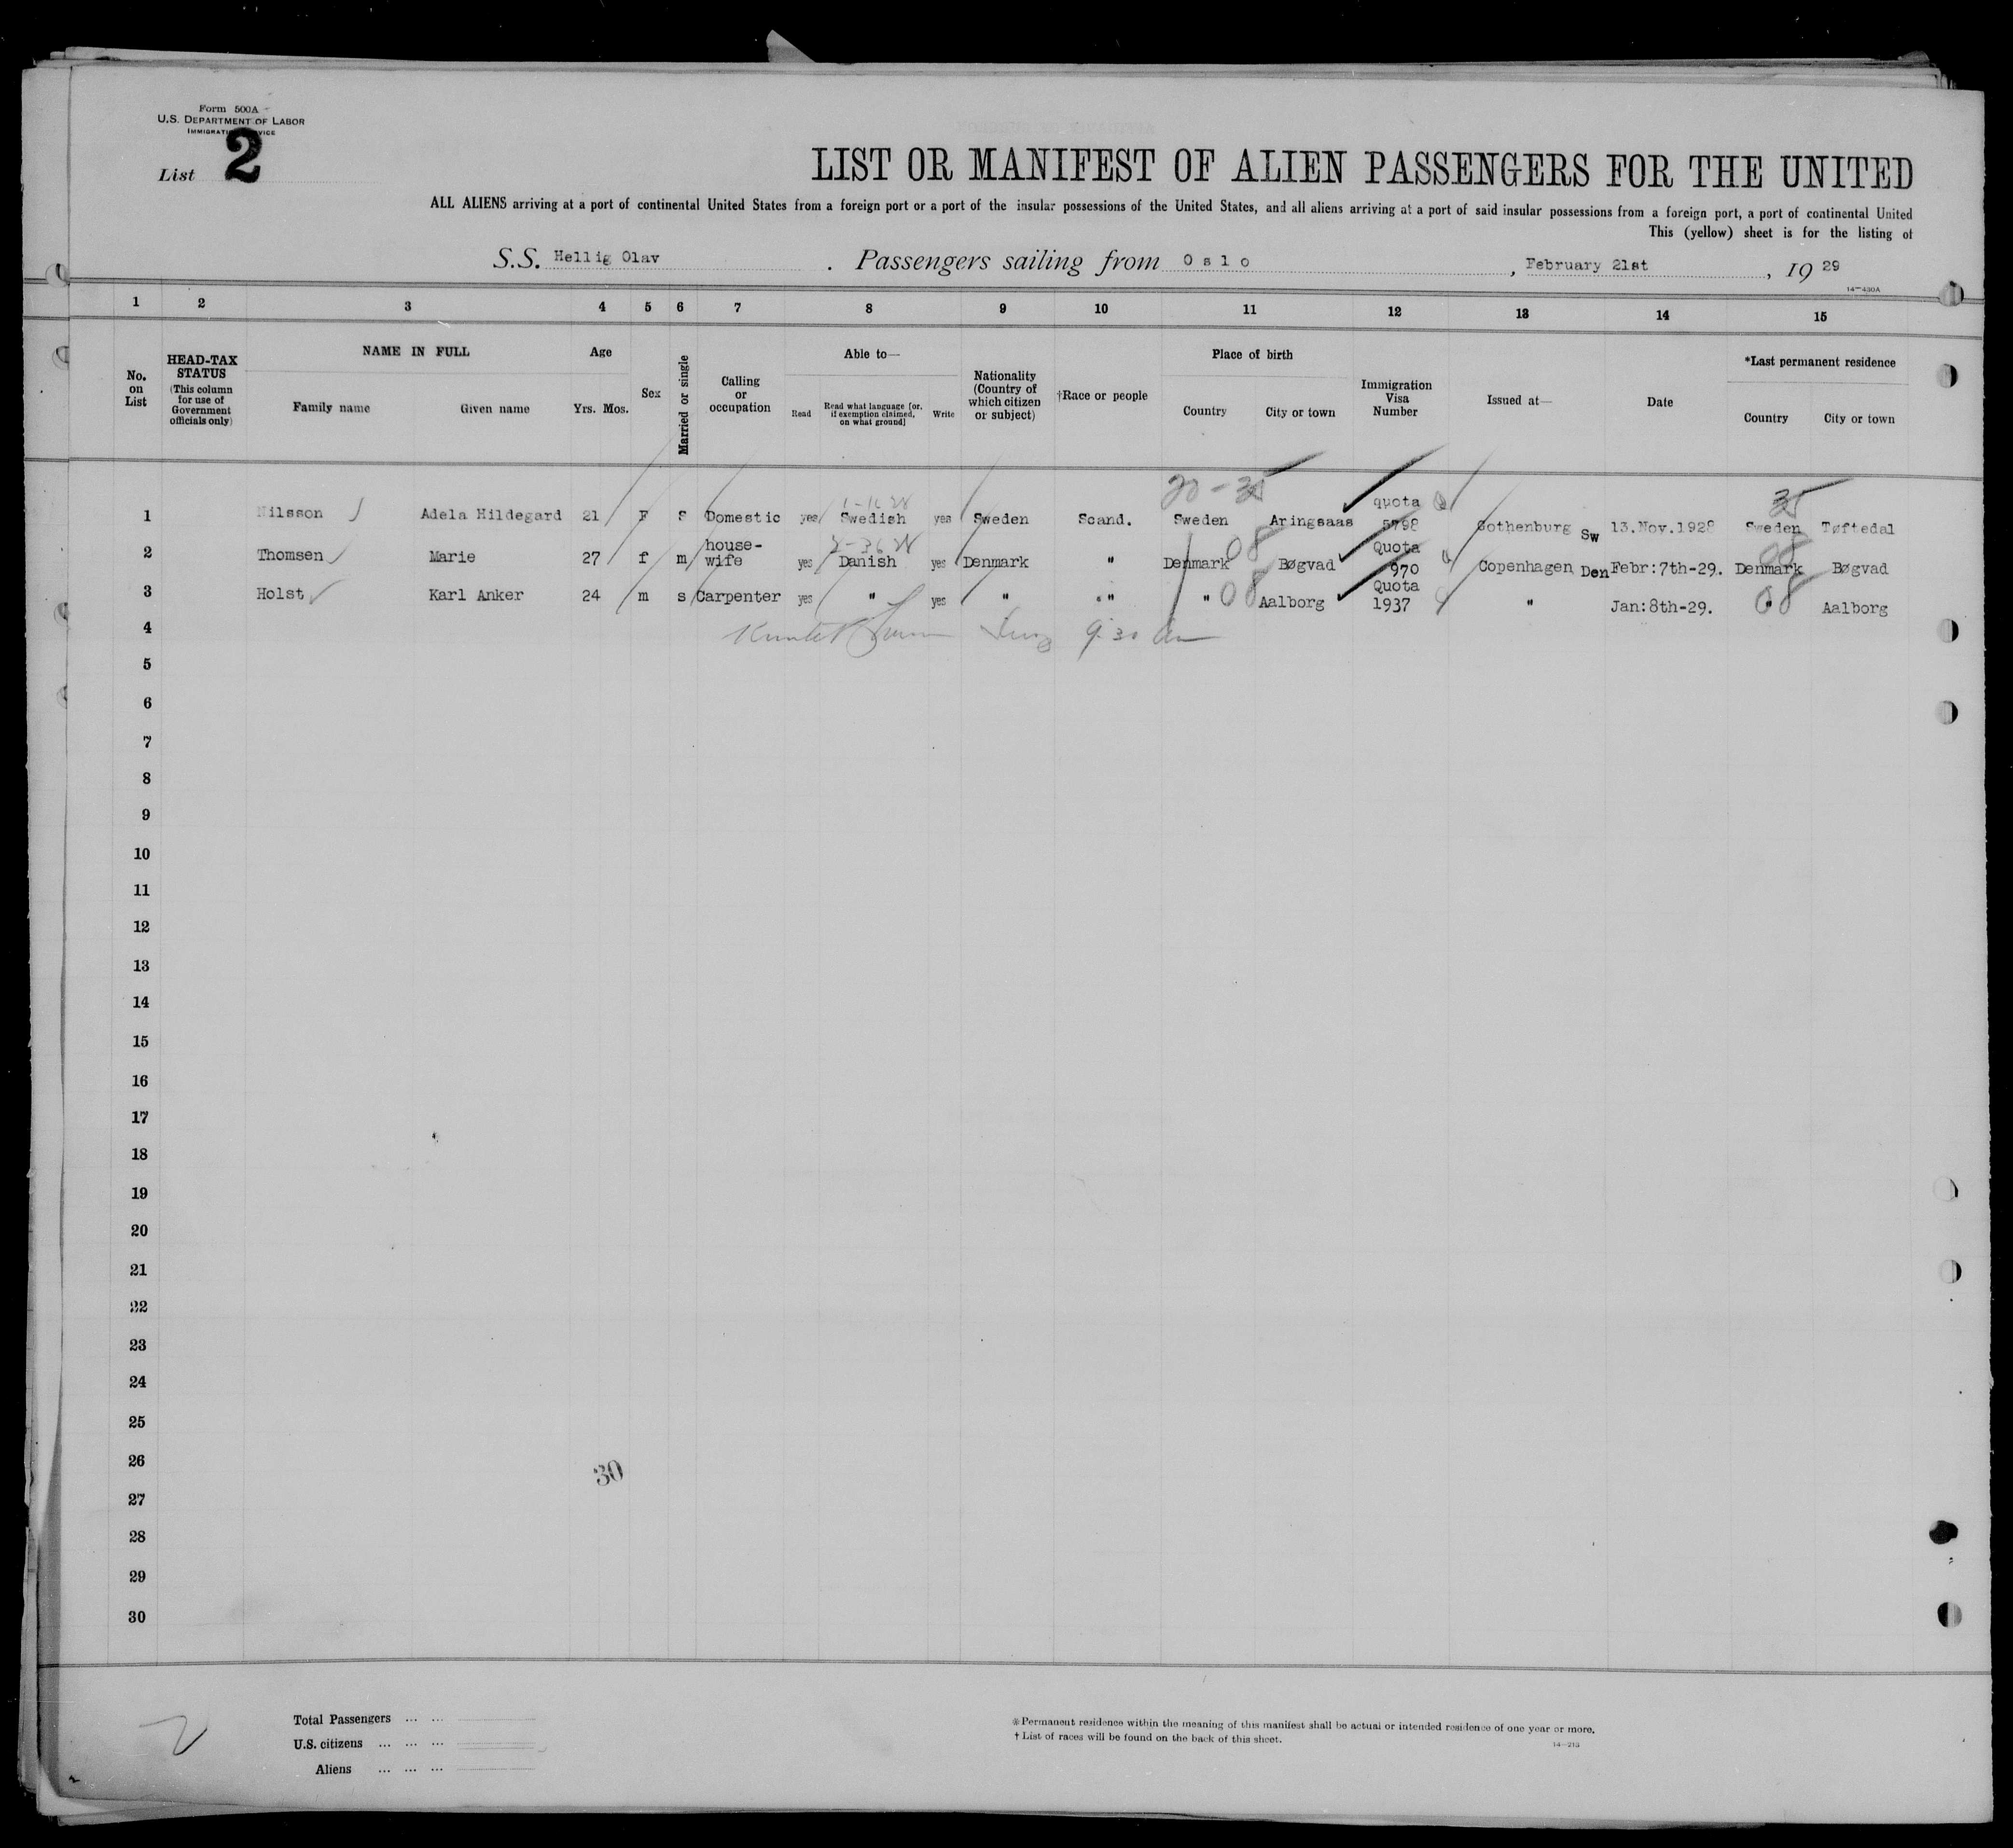 Form 500A
U.S. DEPARTMENT OF LABOR
IMMIGRATION SERVICE
List 2
LIST OR MANIFEST OF ALIEN PASSENGERS FOR THE UNITED
ALL ALIENS arriving at a port of continental United States from a foreign port or a port of the insular possessions of the United States, and all aliens arriving at a port of said insular possessions from a foreign port, a port of continental United
This (yellow) sheet is for the listing of
S.S. Hellig Olav . Passengers sailing from Oslo , February 21st , 19 29
14—430A
1 2 3 4 5 6 7 8 9 10 11 12 13 14 15
No. on List
HEAD-TAX STATUS (This column for use of Government officials only)
NAME IN FULL
Family name Given name
Age
Yrs. Mos.
Sex
Married or single
Calling or occupation
Able to—
Read Read what language [or, if exemption claimed, on what ground] Write
Nationality (Country of which citizen or subject)
†Race or people
Place of birth
Country City or town
Immigration Visa Number
Issued at—
Date
*Last permanent residence
Country City or town
20-35 35
1 Nilsson Adela Hildegard 21 F S Domestic yes Swedish yes Sweden Scand. Sweden Aringsaas quota 5798 Gothenburg Sw 13.Nov.1928 Sweden Tøftedal
2 Thomsen Marie 27 f m house-wife yes Danish yes Denmark " Denmark 08 Bøgvad Quota 970 Copenhagen Den Febr:7th-29. Denmark 08 Bøgvad
3 Holst Karl Anker 24 m s Carpenter yes " yes " " " 08 Aalborg Quota 1937 " Jan:8th-29. " 08 Aalborg
4 9:30 am
5
6
7
8
9
10
11
12
13
14
15
16
17
18
19
20
21
22
23
24
25
26
30
27
28
29
30
2
Total Passengers ... ...
U.S. citizens ... ... ...
Aliens ... ... ...
*Permanent residence within the meaning of this manifest shall be actual or intended residence of one year or more.
† List of races will be found on the back of this sheet.
14—213